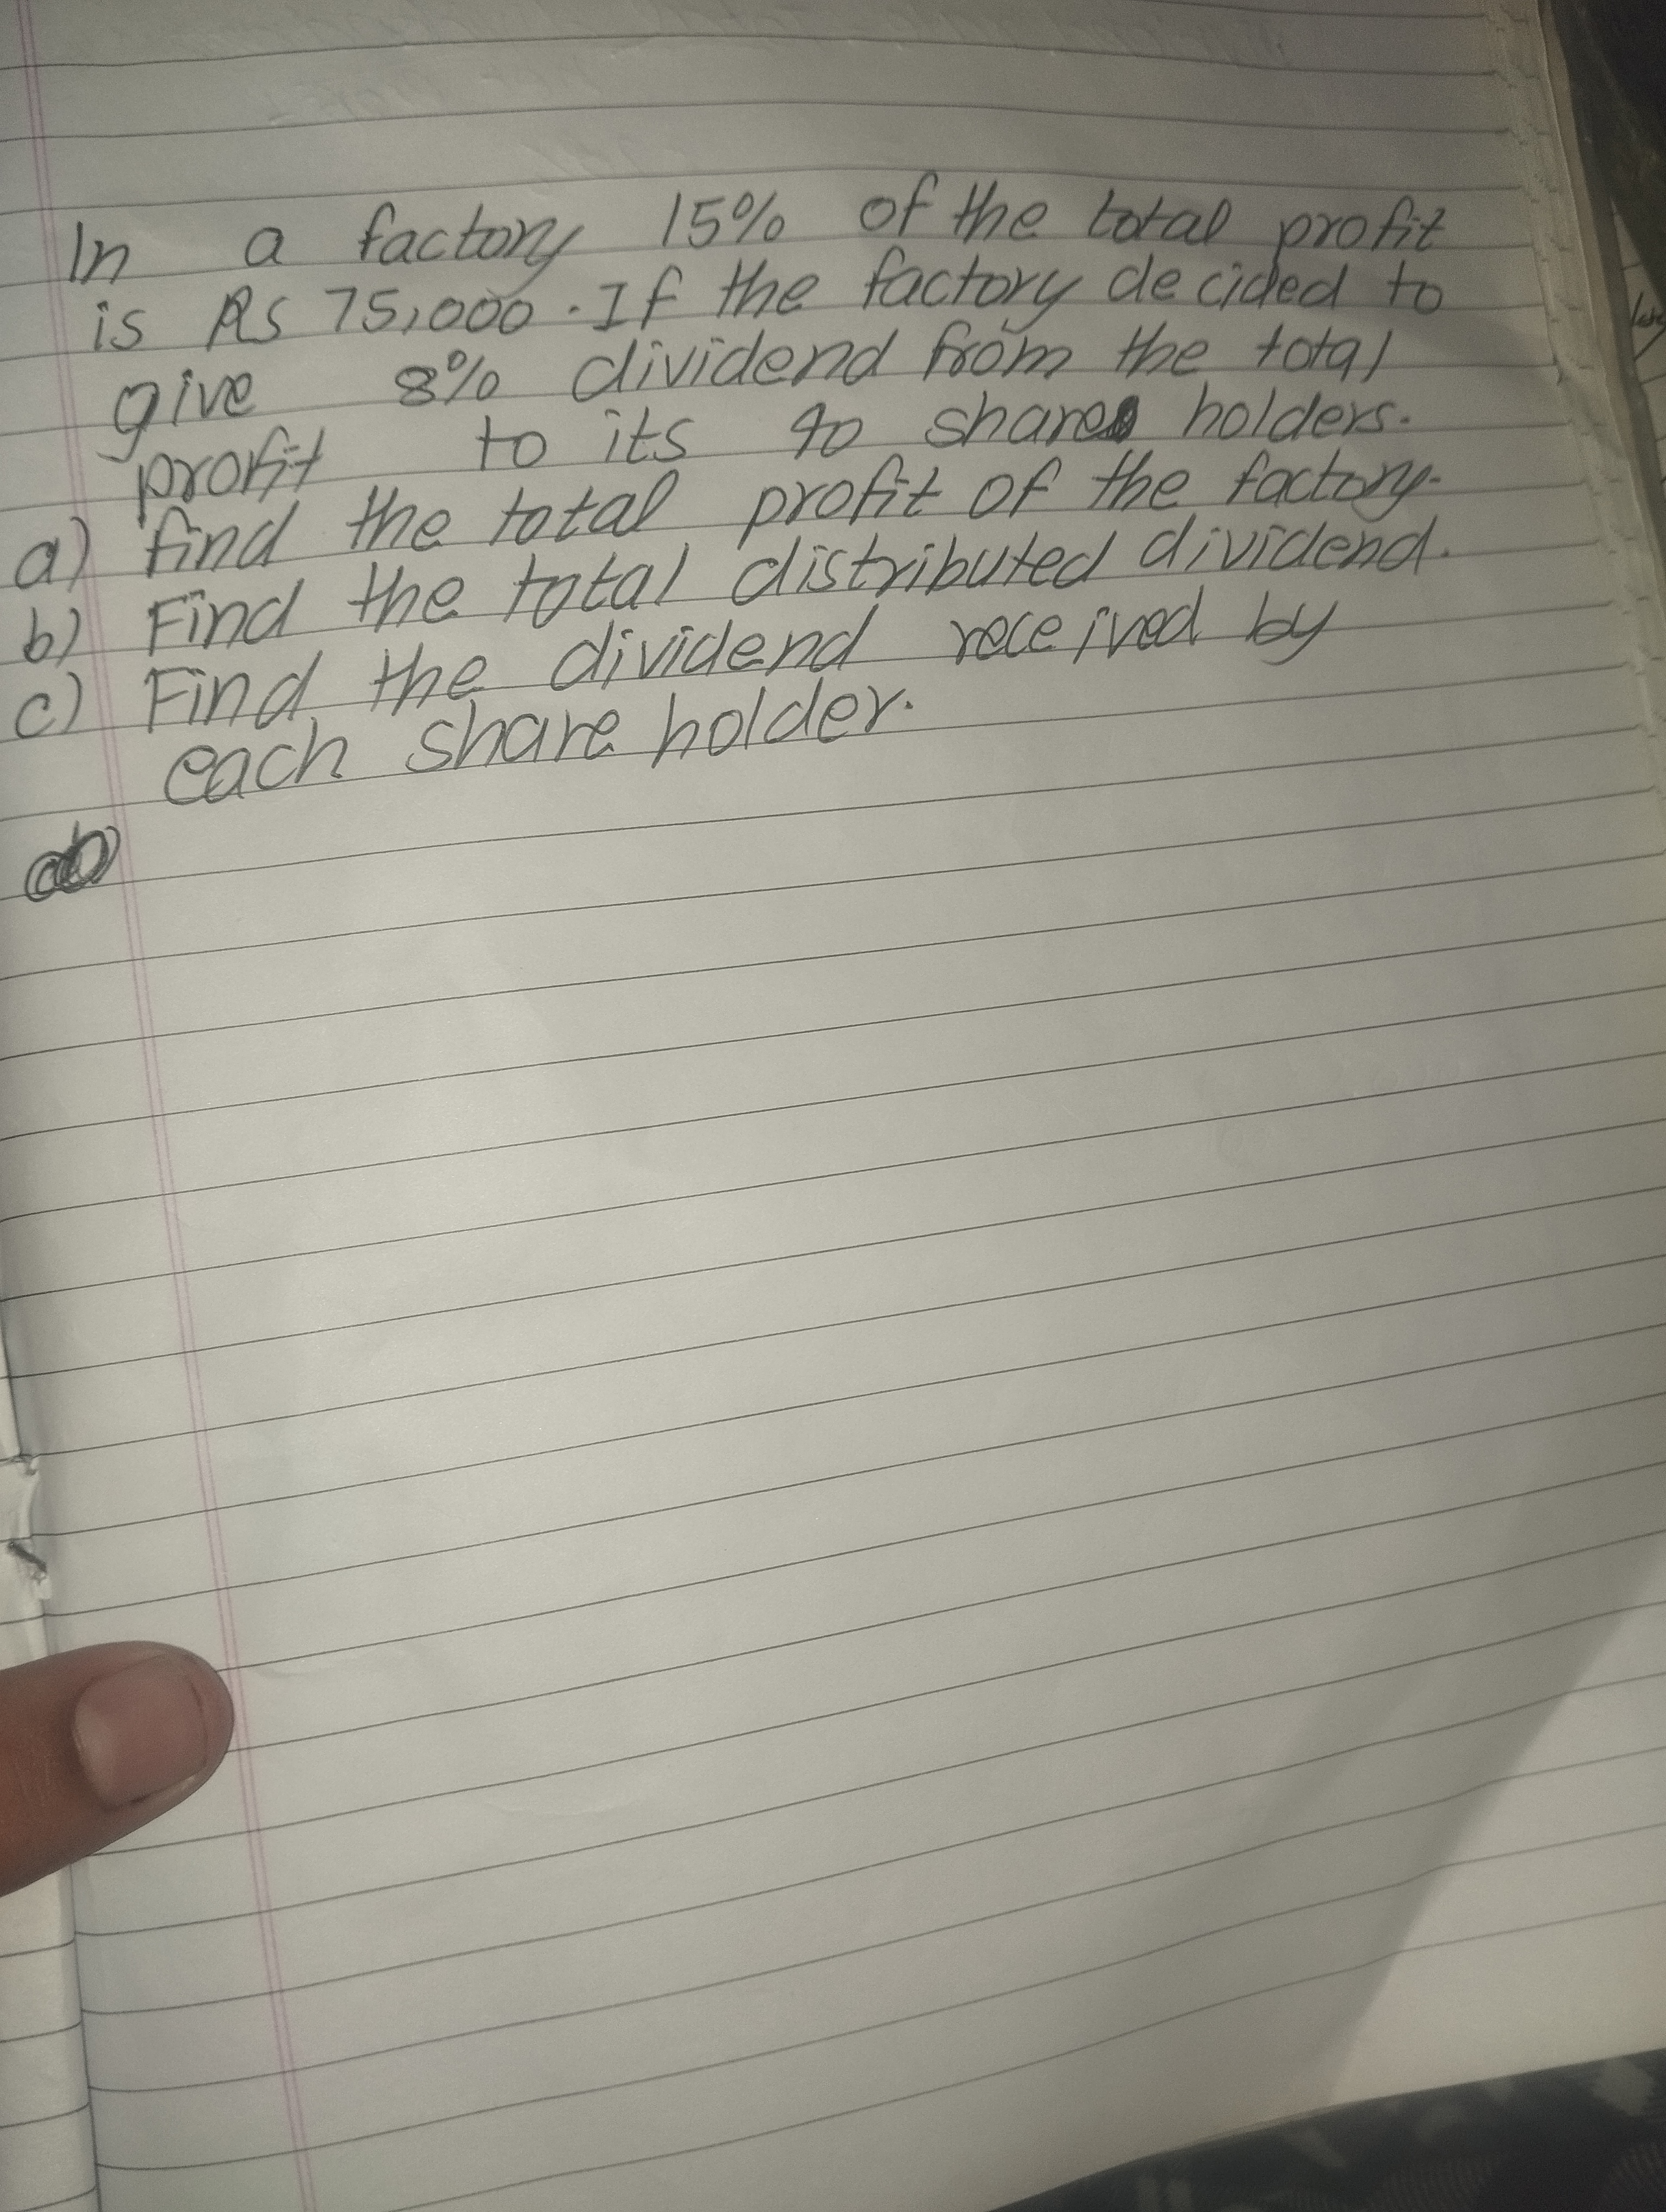 In a factory 15% of the total profit
is Rs 75,000. If the factory decided to
give 8% dividend from the total
profit to its 40 share holders.
a) find the total profit of the factory.
b) Find the total distributed dividend.
c) Find the dividend received by
each share holder.